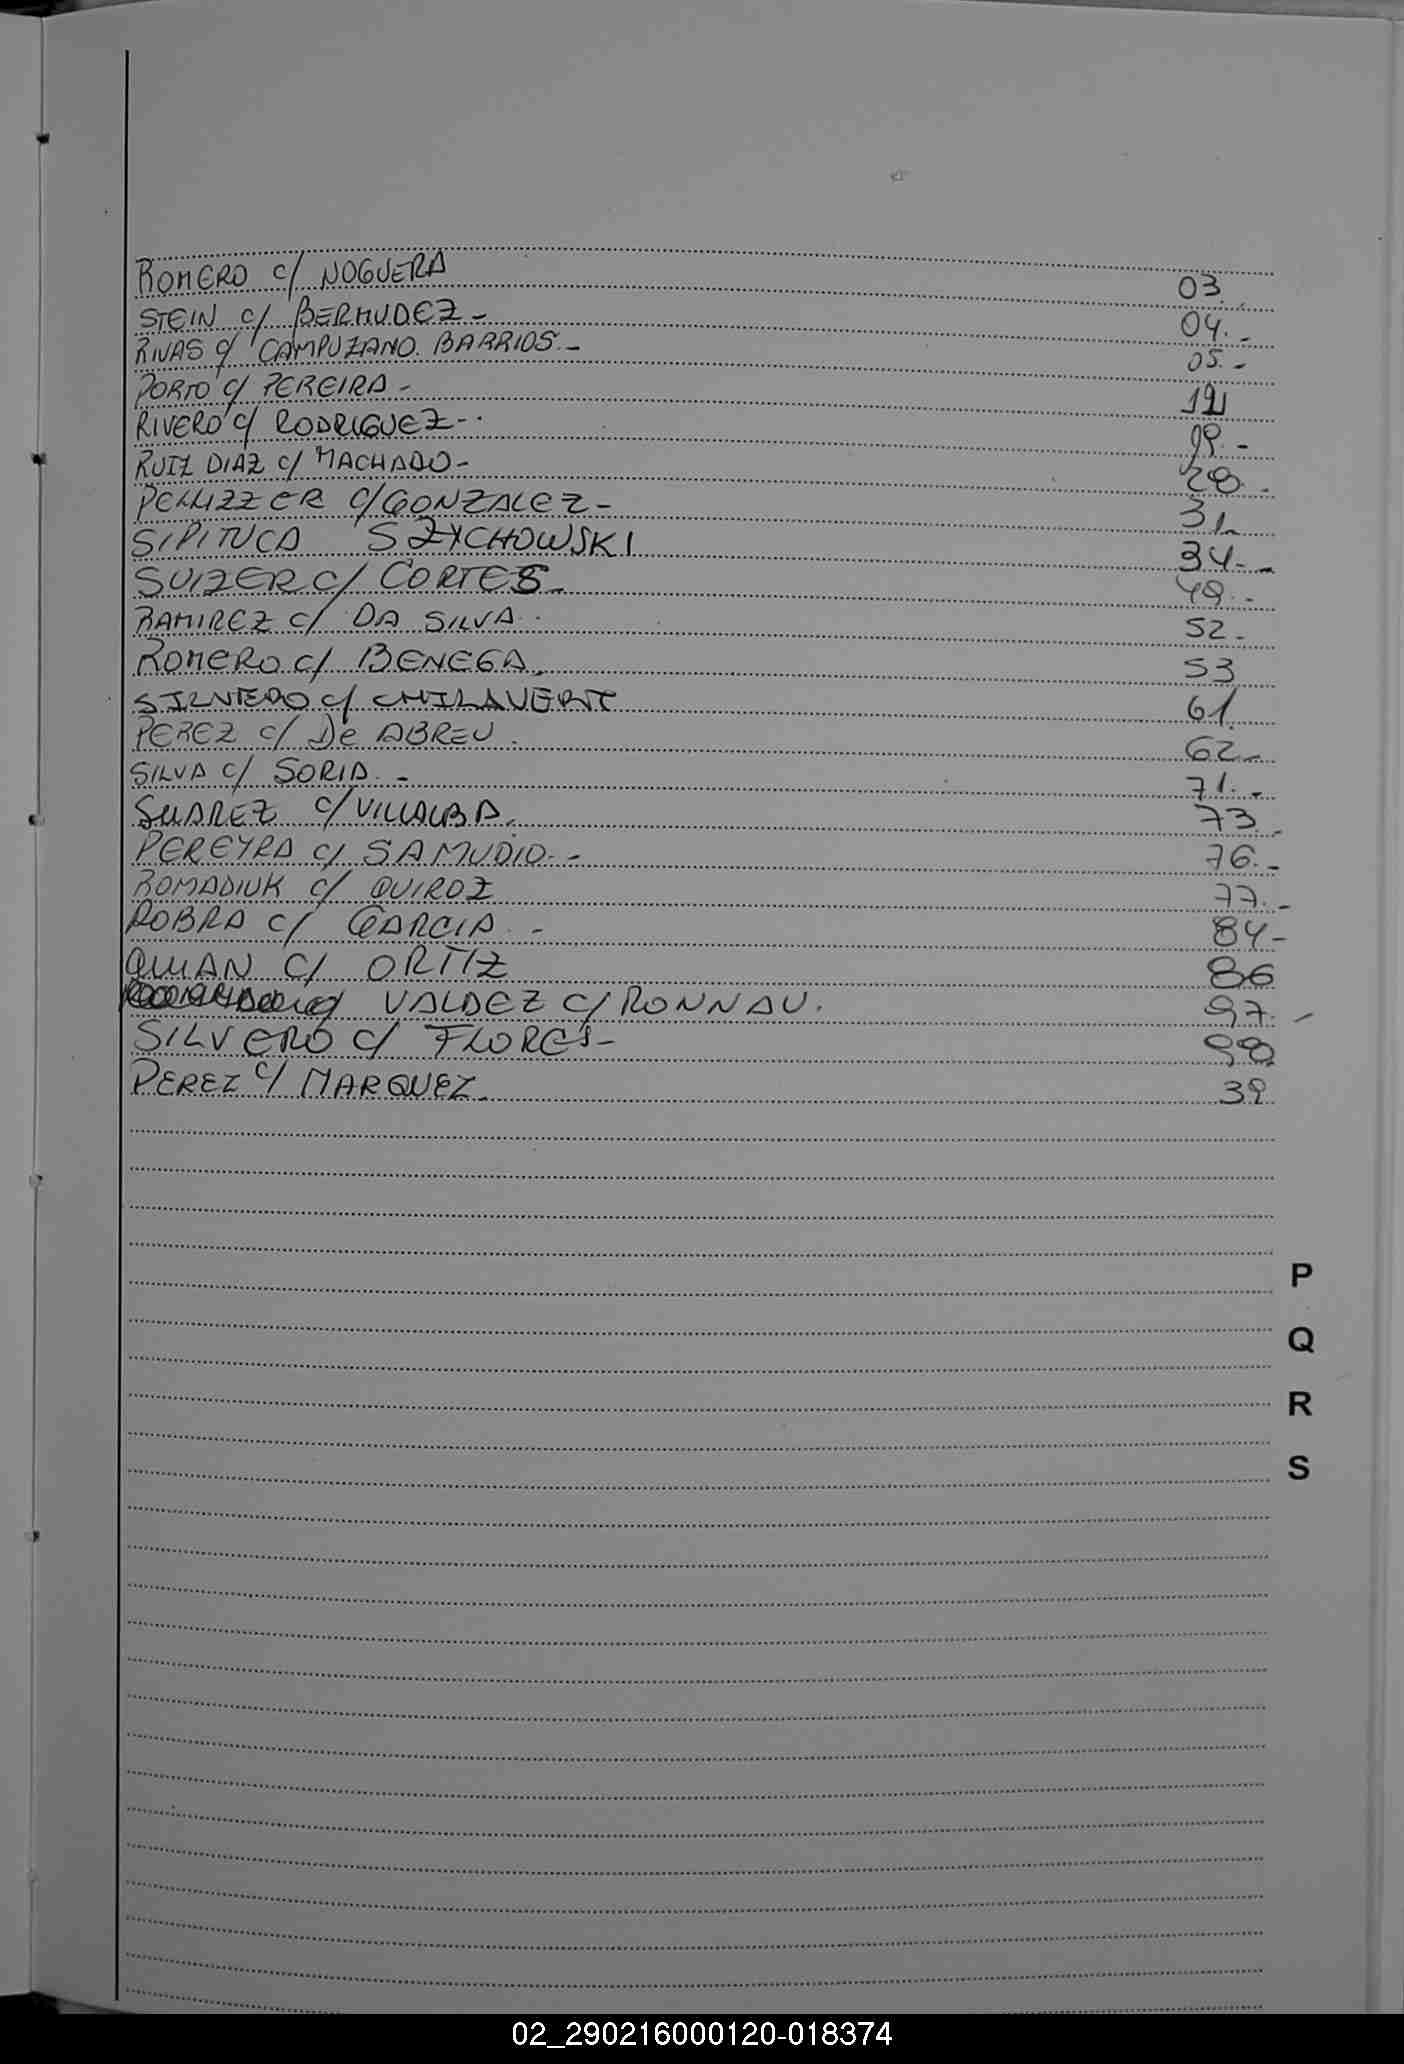 ROMERO c/ NOGUERA 03.
STEIN c/ BERMUDEZ - 04. -
RIVAS c/ CAMPUZANO BARRIOS. - 05. -
PORTO c/ PEREIRA -
RIVERO c/ RODRIGUEZ - .
RUIZ DIAZ c/ MACHADO - 28 -
PELLIZZER c/ GONZALEZ - 31 -
SIPITUCA SZYCHOWSKI 34. -
SUIZER c/ CORTES - 49. -
RAMIREZ c/ DA SILVA. 52 -
ROMERO c/ BENEGA. 53
c/ CHILAVERT 61.
PEREZ c/ De ABREU. 62 -
SILVA c/ SORIA. - 71. -
SUAREZ c/ VILLALBA. 73. -
PEREYRA c/ SAMUDIO. - 76. -
ROMADIUK c/ QUIROZ 77. -
ROBRA c/ GARCIA. - 84 -
c/ ORTIZ 86
VALDEZ c/ RONNAU. 97. -
SILVERO c/ FLORES -
PEREZ c/ MARQUEZ. 39
P
Q
R
S
02_290216000120-018374